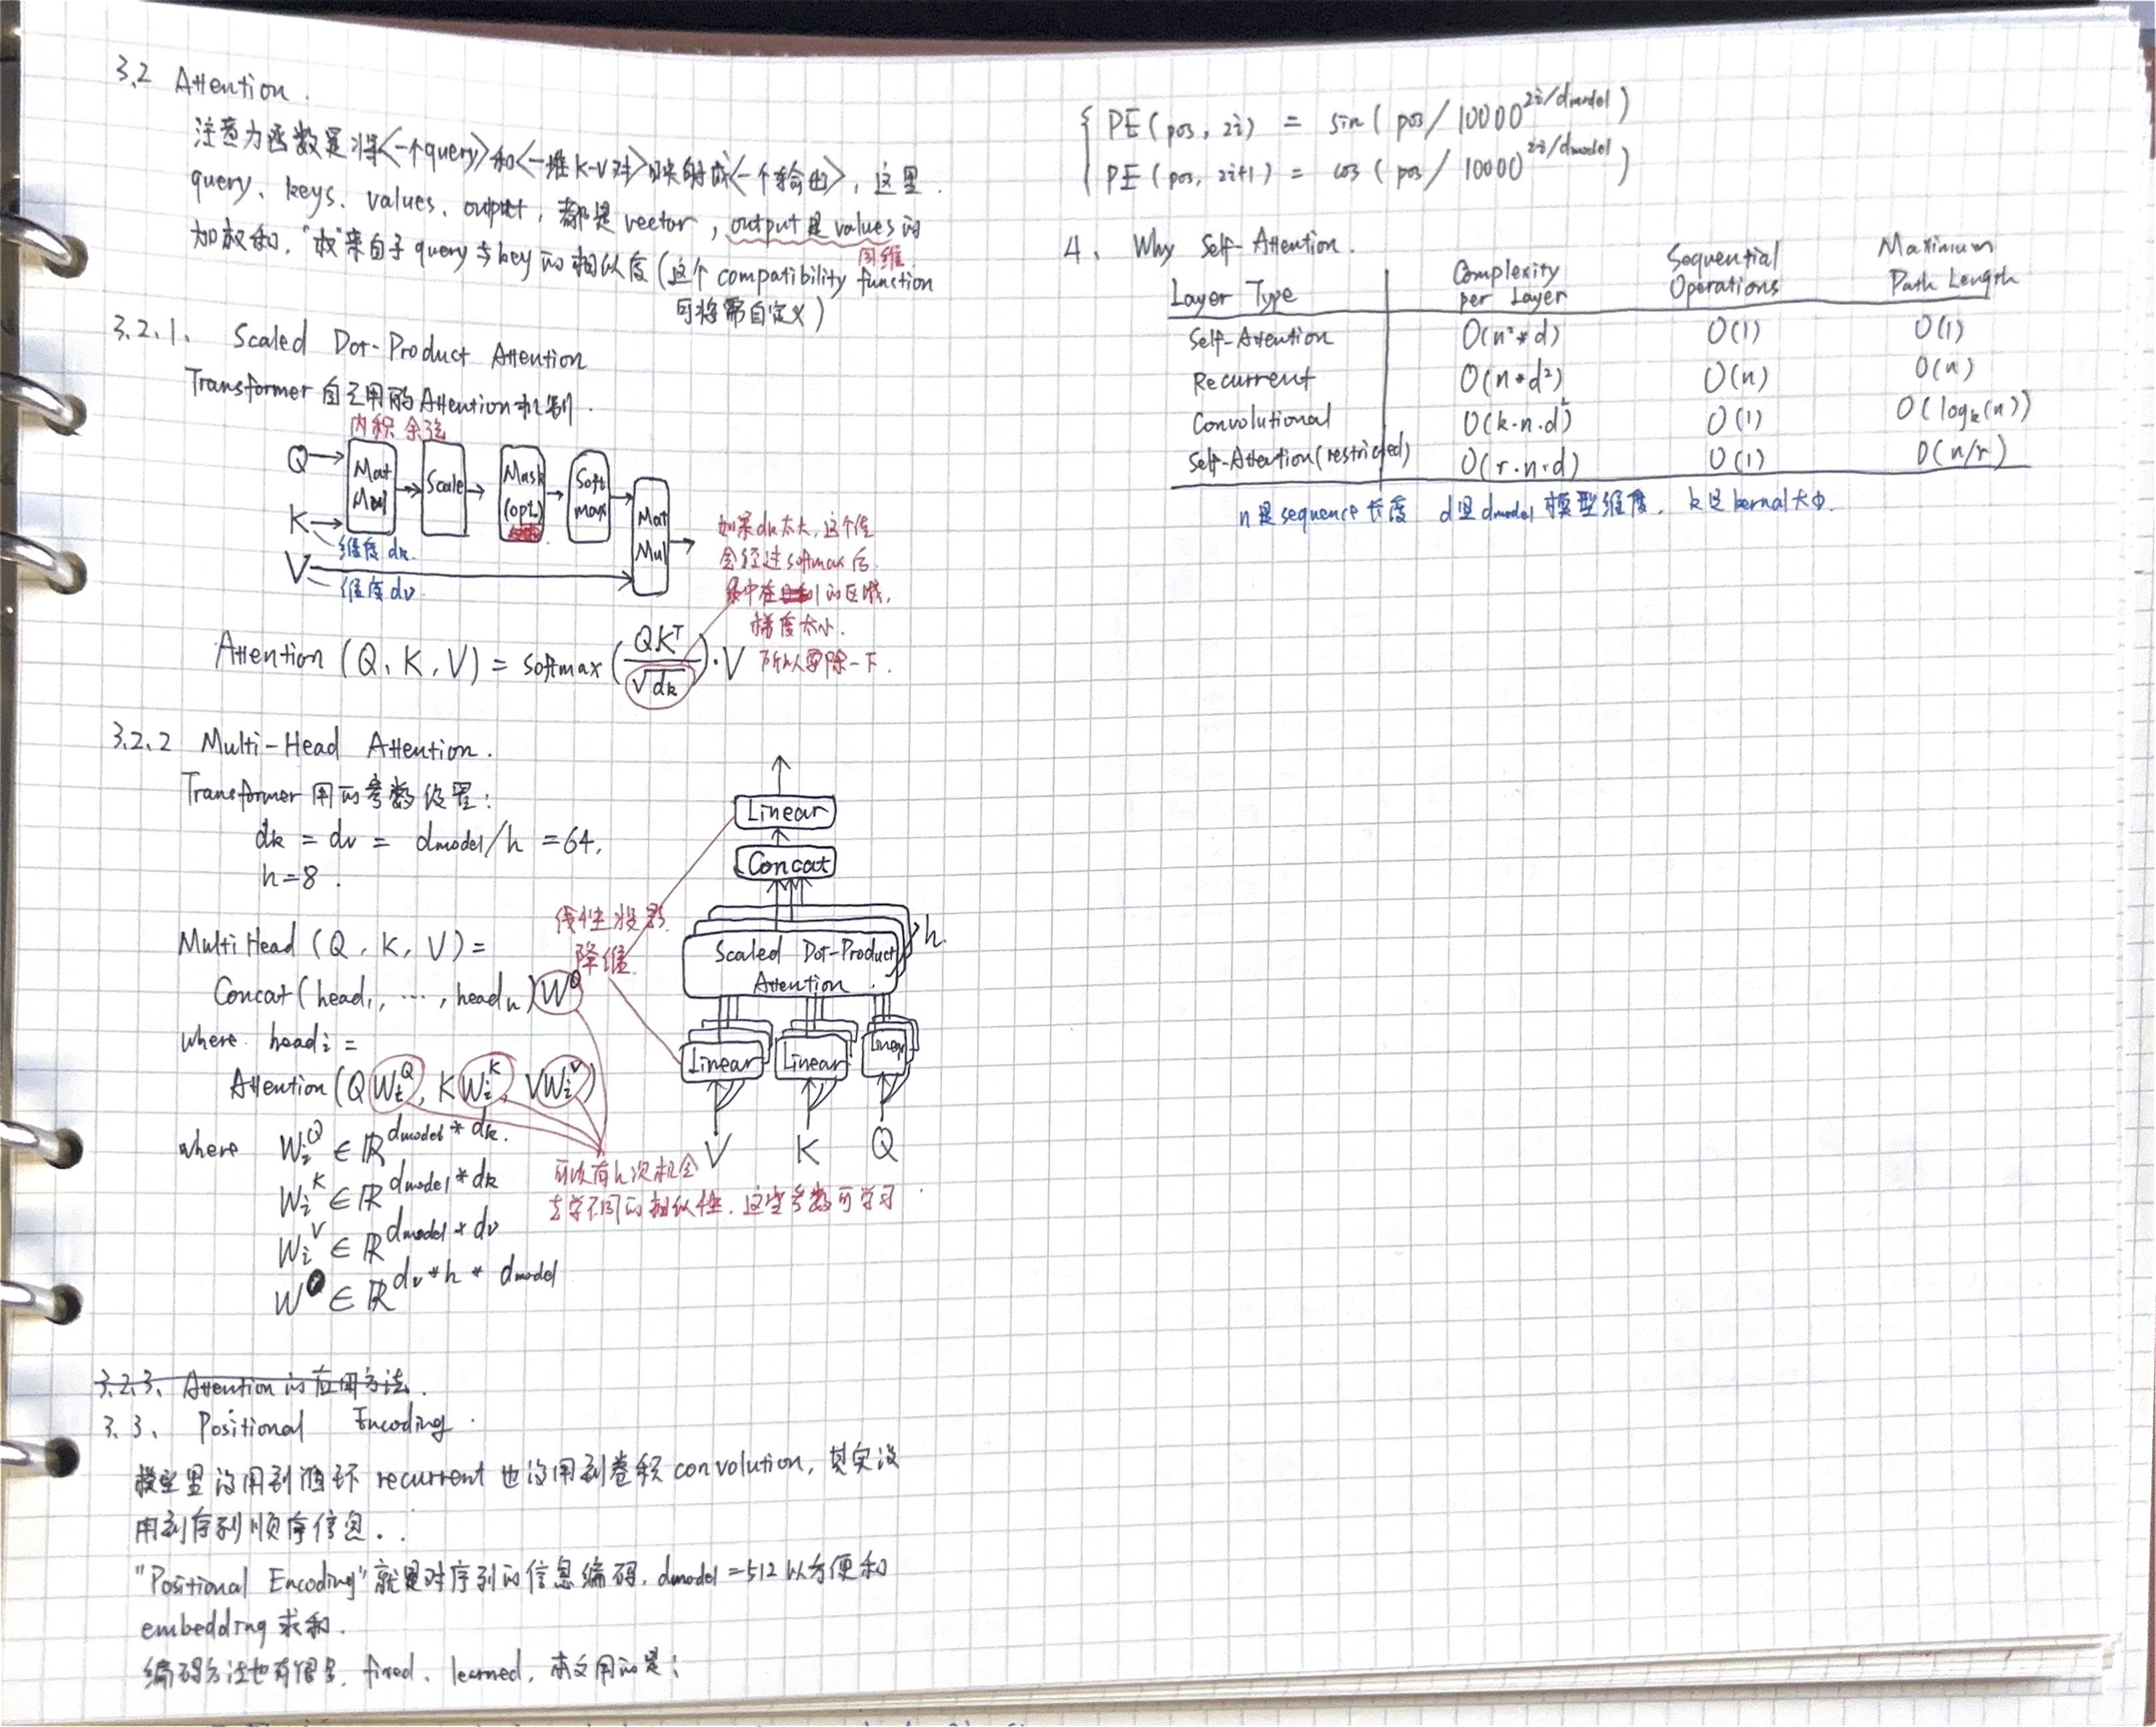 3.2 Attention.
注意力函数是将<一个query>和<一堆K-V对>映射成<一个输出>, 这里
query、keys、values、output, 都是vector, output是values的
同维
加权和, "权"来自于query与key的相似度(这个compatibility function
可将需自定义)
3.2.1. Scaled Dot-Product Attention
Transformer自己用的Attention机制.
内积 余弦
Q
K
V
Mat
Mul
Scale
Mask
(opt.)
Soft
max
Mat
Mul
维度dk.
维度dv
如果dk太大,这个值
会经过softmax后
集中在 1的区域,
梯度太小.
所以要除一下.
Attention (Q, K, V) = softmax (QK^T / √dk)·V
3.2.2 Multi-Head Attention.
Transformer用的参数设置:
dk = dv = dmodel/h = 64,
h=8.
MultiHead (Q, K, V) =
Concat(head1, ..., headh)W^O
where headi =
Attention(QWi^Q, KWi^K, VWi^V)
where Wi^Q ∈ R^dmodel*dk.
Wi^K ∈ R^dmodel*dk
Wi^V ∈ R^dmodel*dv
W^O ∈ R^dv*h*dmodel
线性投影
降维
Linear
Concat
Scaled Dot-Product
Attention
h
Linear
Linear
Linear
V
K
Q
可以有h次机会
去学不同的相似性. 这些参数可学习
3.2.3、Attention的应用方法.
3.3、Positional Encoding.
模型里没用到循环recurrent也没用到卷积convolution, 其实没
用到序列顺序信息.
"Positional Encoding"就是对序列的信息编码, dmodel=512以方便和
embedding求和.
编码方法也有很多, fixed、learned, 本文用的是:
PE(pos, 2i) = sin(pos/10000^2i/dmodel)
PE(pos, 2i+1) = cos(pos/10000^2i/dmodel)
4、Why Self-Attention.
Layer Type | Complexity per Layer | Sequential Operations | Maximum Path Length
Self-Attention | O(n²*d) | O(1) | O(1)
Recurrent | O(n*d²) | O(n) | O(n)
Convolutional | O(k·n·d²) | O(1) | O(logk(n))
Self-Attention(restricted) | O(r·n·d) | O(1) | O(n/r)
n是sequence长度 d是dmodel模型维度, k是kernal大小.